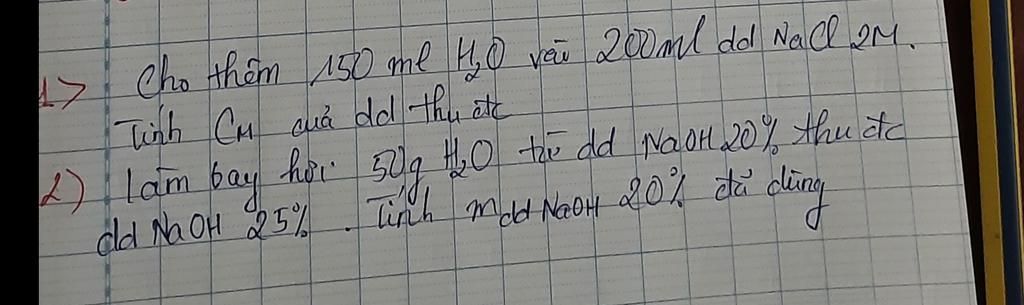 1> Cho thêm 150 ml H₂O vào 200ml dd NaCl 2M.
Tính CM của dd thu đc
2) Làm bay hơi 50g H₂O từ dd NaOH 20% thu đc
dd NaOH 25%. Tính mdd NaOH 20% đã dùng